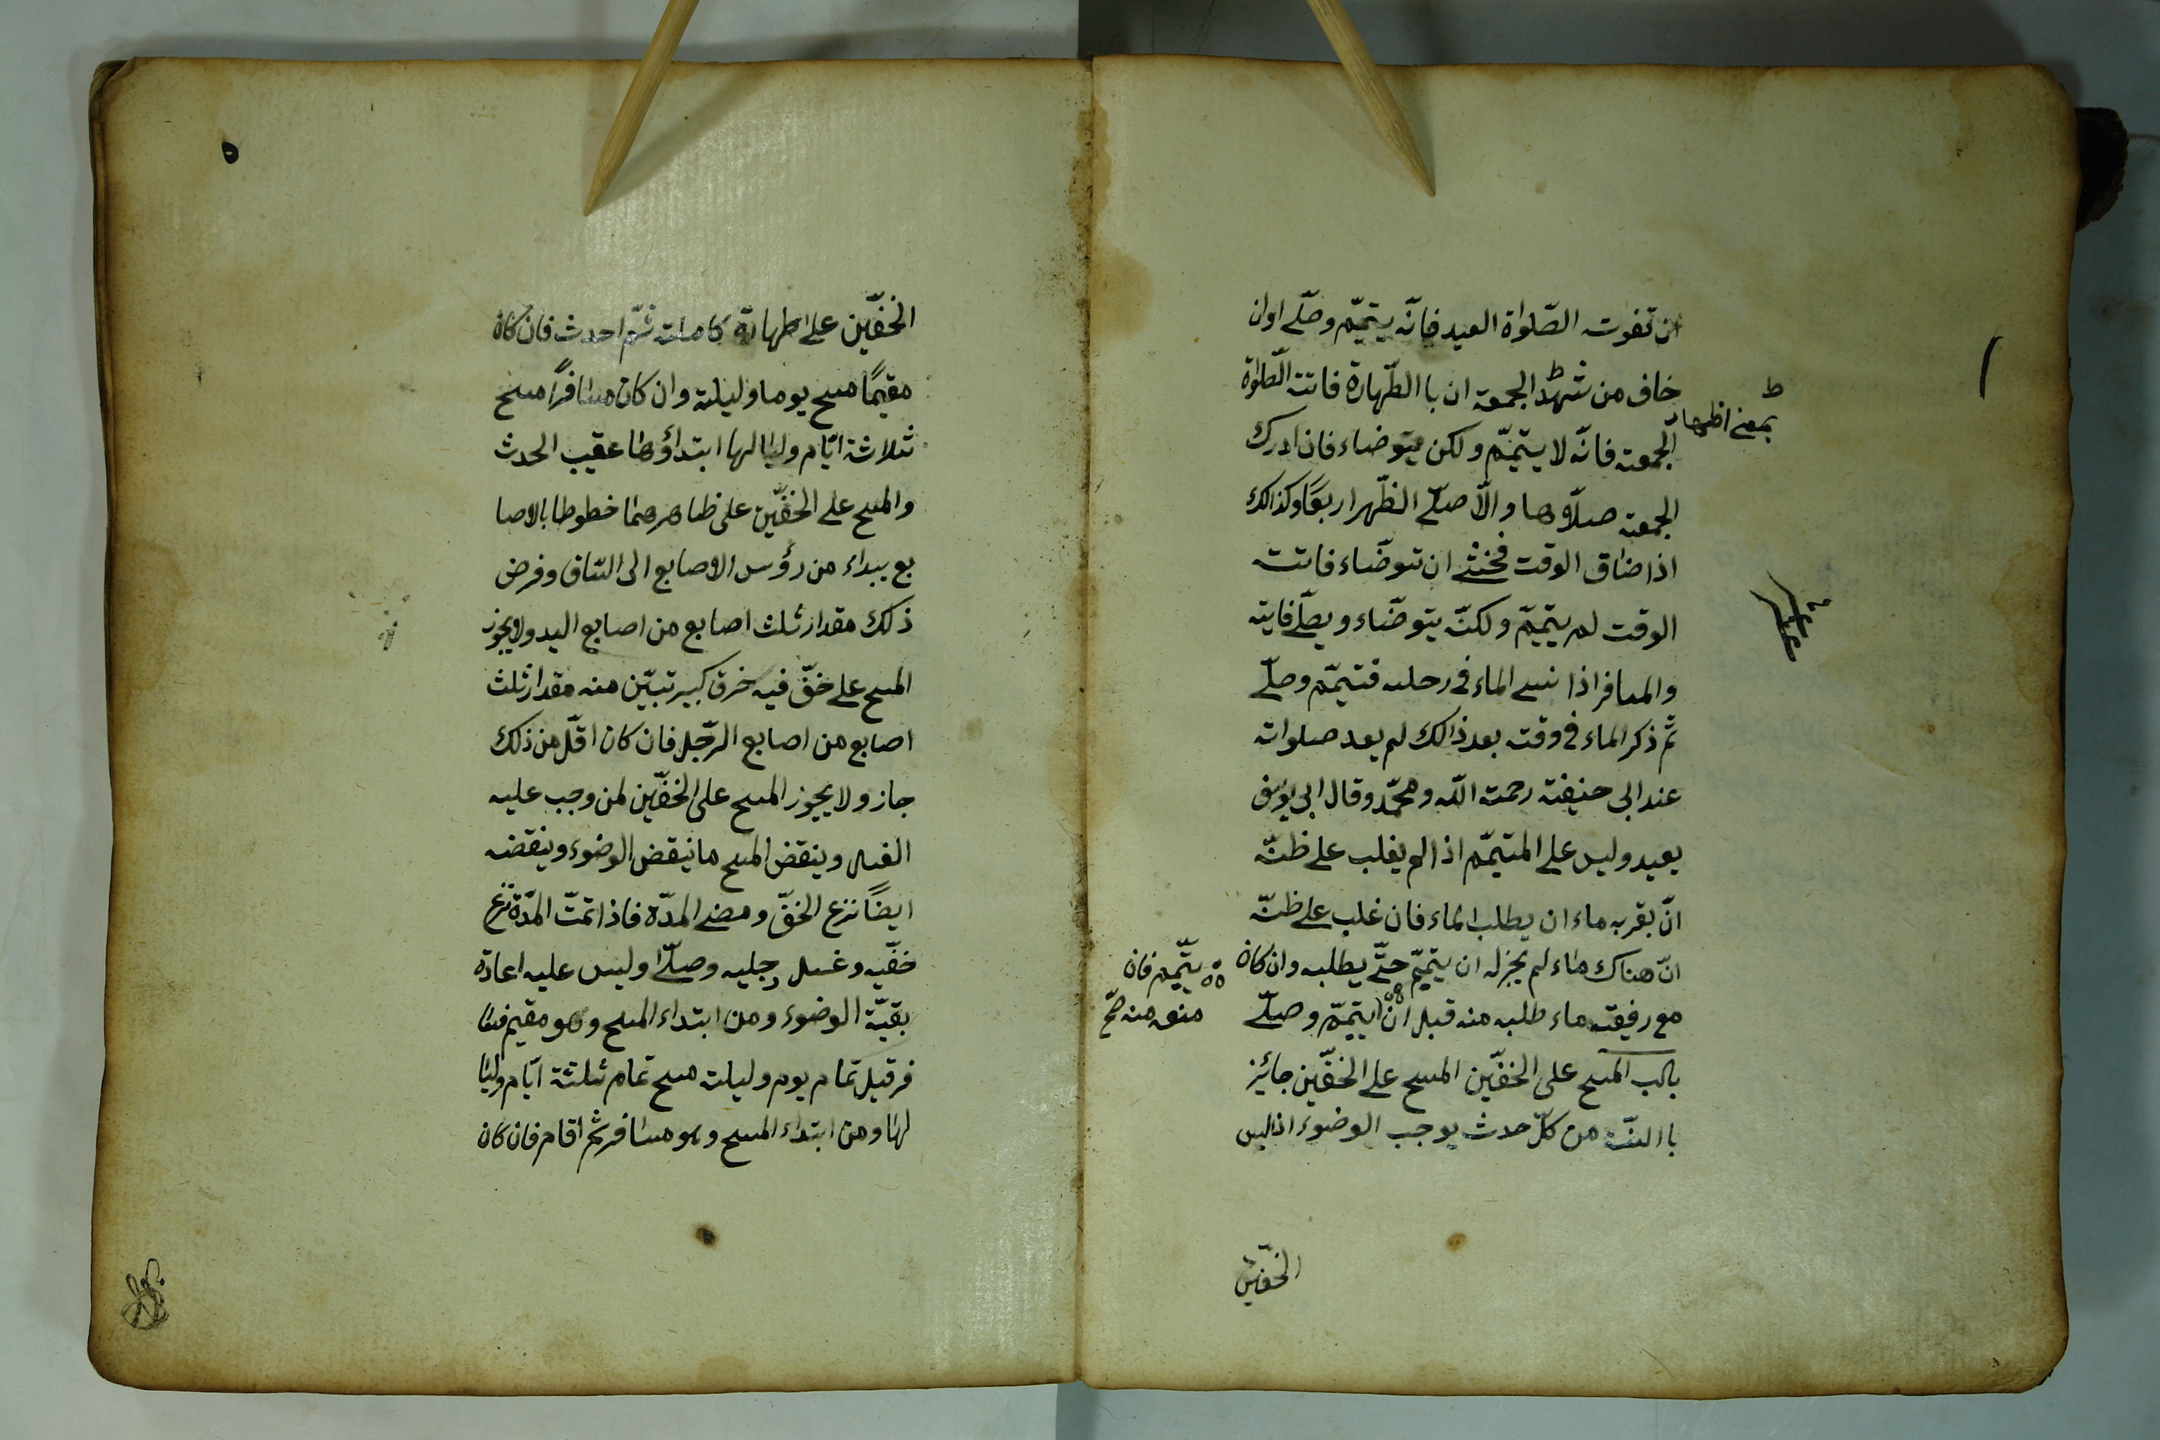 ان تفوت الصّلواة العيد فانّه يتيمّم وصلّى اوان
خاف من شهد الجمعة ان باالطّهارة فاتته الصّلوة
بمعنى اظهار
الجمعة فانّه لا يتيمّم ولكن يتوضاء فان ادرك
الجمعة صلّاوها والّا صلّى الظّهر اربعًا وكذالك
اذا ضاق الوقت فخشى ان توضّاء فاتت
الوقت لم يتيمّم ولكنّه يتوضّاء ويصلّى فايته
والمسافر اذا نسى الماء فى رحله فتيمّم وصلّى
ثمّ ذكر الماء فى وقته بعد ذالك لم يعد صلواته
عند ابى حنيفة رحمة الله ومحمّد وقال ابى يوسف
يعيد وليس على المتيمّم اذا لم يغلب على ظنّه
انّ بقربه ماء ان يطلب الماء فان غلب على ظنّه
انّ هناك ماء لم يجز له ان يتيمّم حتّى يطلبه وان كان
مع رفيقه ماء طلبه منه قبل ان يتيمّم وصلّى
يتيمّم فان
منعه منه صح
باب المسح على الخفّين المسح على الخفّين جائز
باالسنّة من كلّ حدث يوجب الوضوء اذا لبس
الخفّين
٥
الخفّين على طهارة كاملة ثمّ احدث فان كان
مقيمًا مسح يوما وليلة وان كان مسافرًا مسح
ثلاثة ايّام ولياليها ابتداؤها عقيب الحدث
والمسح على الخفّين على ظاهرهما خطوطا بالاصا
بع يبداء من رؤس الاصابع الى السّاق وفرض
ذلك مقدار ثلث اصابع من اصابع اليد ولا يجوز
المسح على خفّ فيه خرق كبير تبيّن منه مقدار ثلث
اصابع من اصابع الرّجل فان كان اقلّ من ذلك
جاز ولا يجوز المسح على الخفّين لمن وجب عليه
الغسل وينقض المسح ما ينقض الوضوء وينقضه
ايضًا نزع الخفّ ومضى المدّة فاذا تمّت المدّة نزع
خفّيه وغسل رجليه وصلّا وليس عليه اعادة
بقيّة الوضوء ومن ابتداء المسح وهو مقيم فسا
فر قبل تمام يوم وليلة مسح تمام ثلثة ايّام وليا
لها ومن ابتداء المسح وهو مسافر ثم اقام فان كان